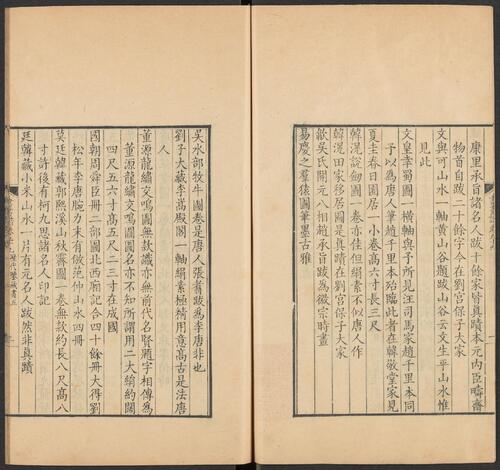 康里承旨諸名人跋十餘家皆真蹟本元内臣疇齋
物首自跋二十餘字今在劉宫保子大家
文與可山水一軸黄山谷題跋山谷云文生平山水惟
見此
文皇幸蜀圖一横軸與予所見汪司馬家趙千里本同
予以爲唐人筆趙千里本殆臨此者在韓敬堂家見
夏圭春日園居一小卷高六寸長三尺
韓滉説劍圖一卷亦佳但絹素不似唐人作
韓滉田家移居圖是真蹟在劉宫保子大家
歙吴氏開元八相趙承旨跋爲徽宗時畫
易慶之羣猿圖筆墨古雅
吴水部牧牛圖卷是唐人張耆跋爲李唐非也
劉子大藏李嵩殿閣一軸絹素極精用意高古是法唐
人
董源龍繡交鳴圖無款識亦無前代名賢題字相傳爲
董源龍繡交鳴圖圖名亦不知所謂用二大絹約闊
四尺五六寸高五尺二三寸在成國
國朝周舜臣冊二部圖北西廂記合四十餘冊大得劉
松年李唐腕力末有倣范仲山水四冊
莫廷韓藏郭熙溪山秋霽圖一卷無款約長八尺高八
寸許後有柯九思諸名人印記
廷韓藏小米山水一片有元名人跋然非真蹟